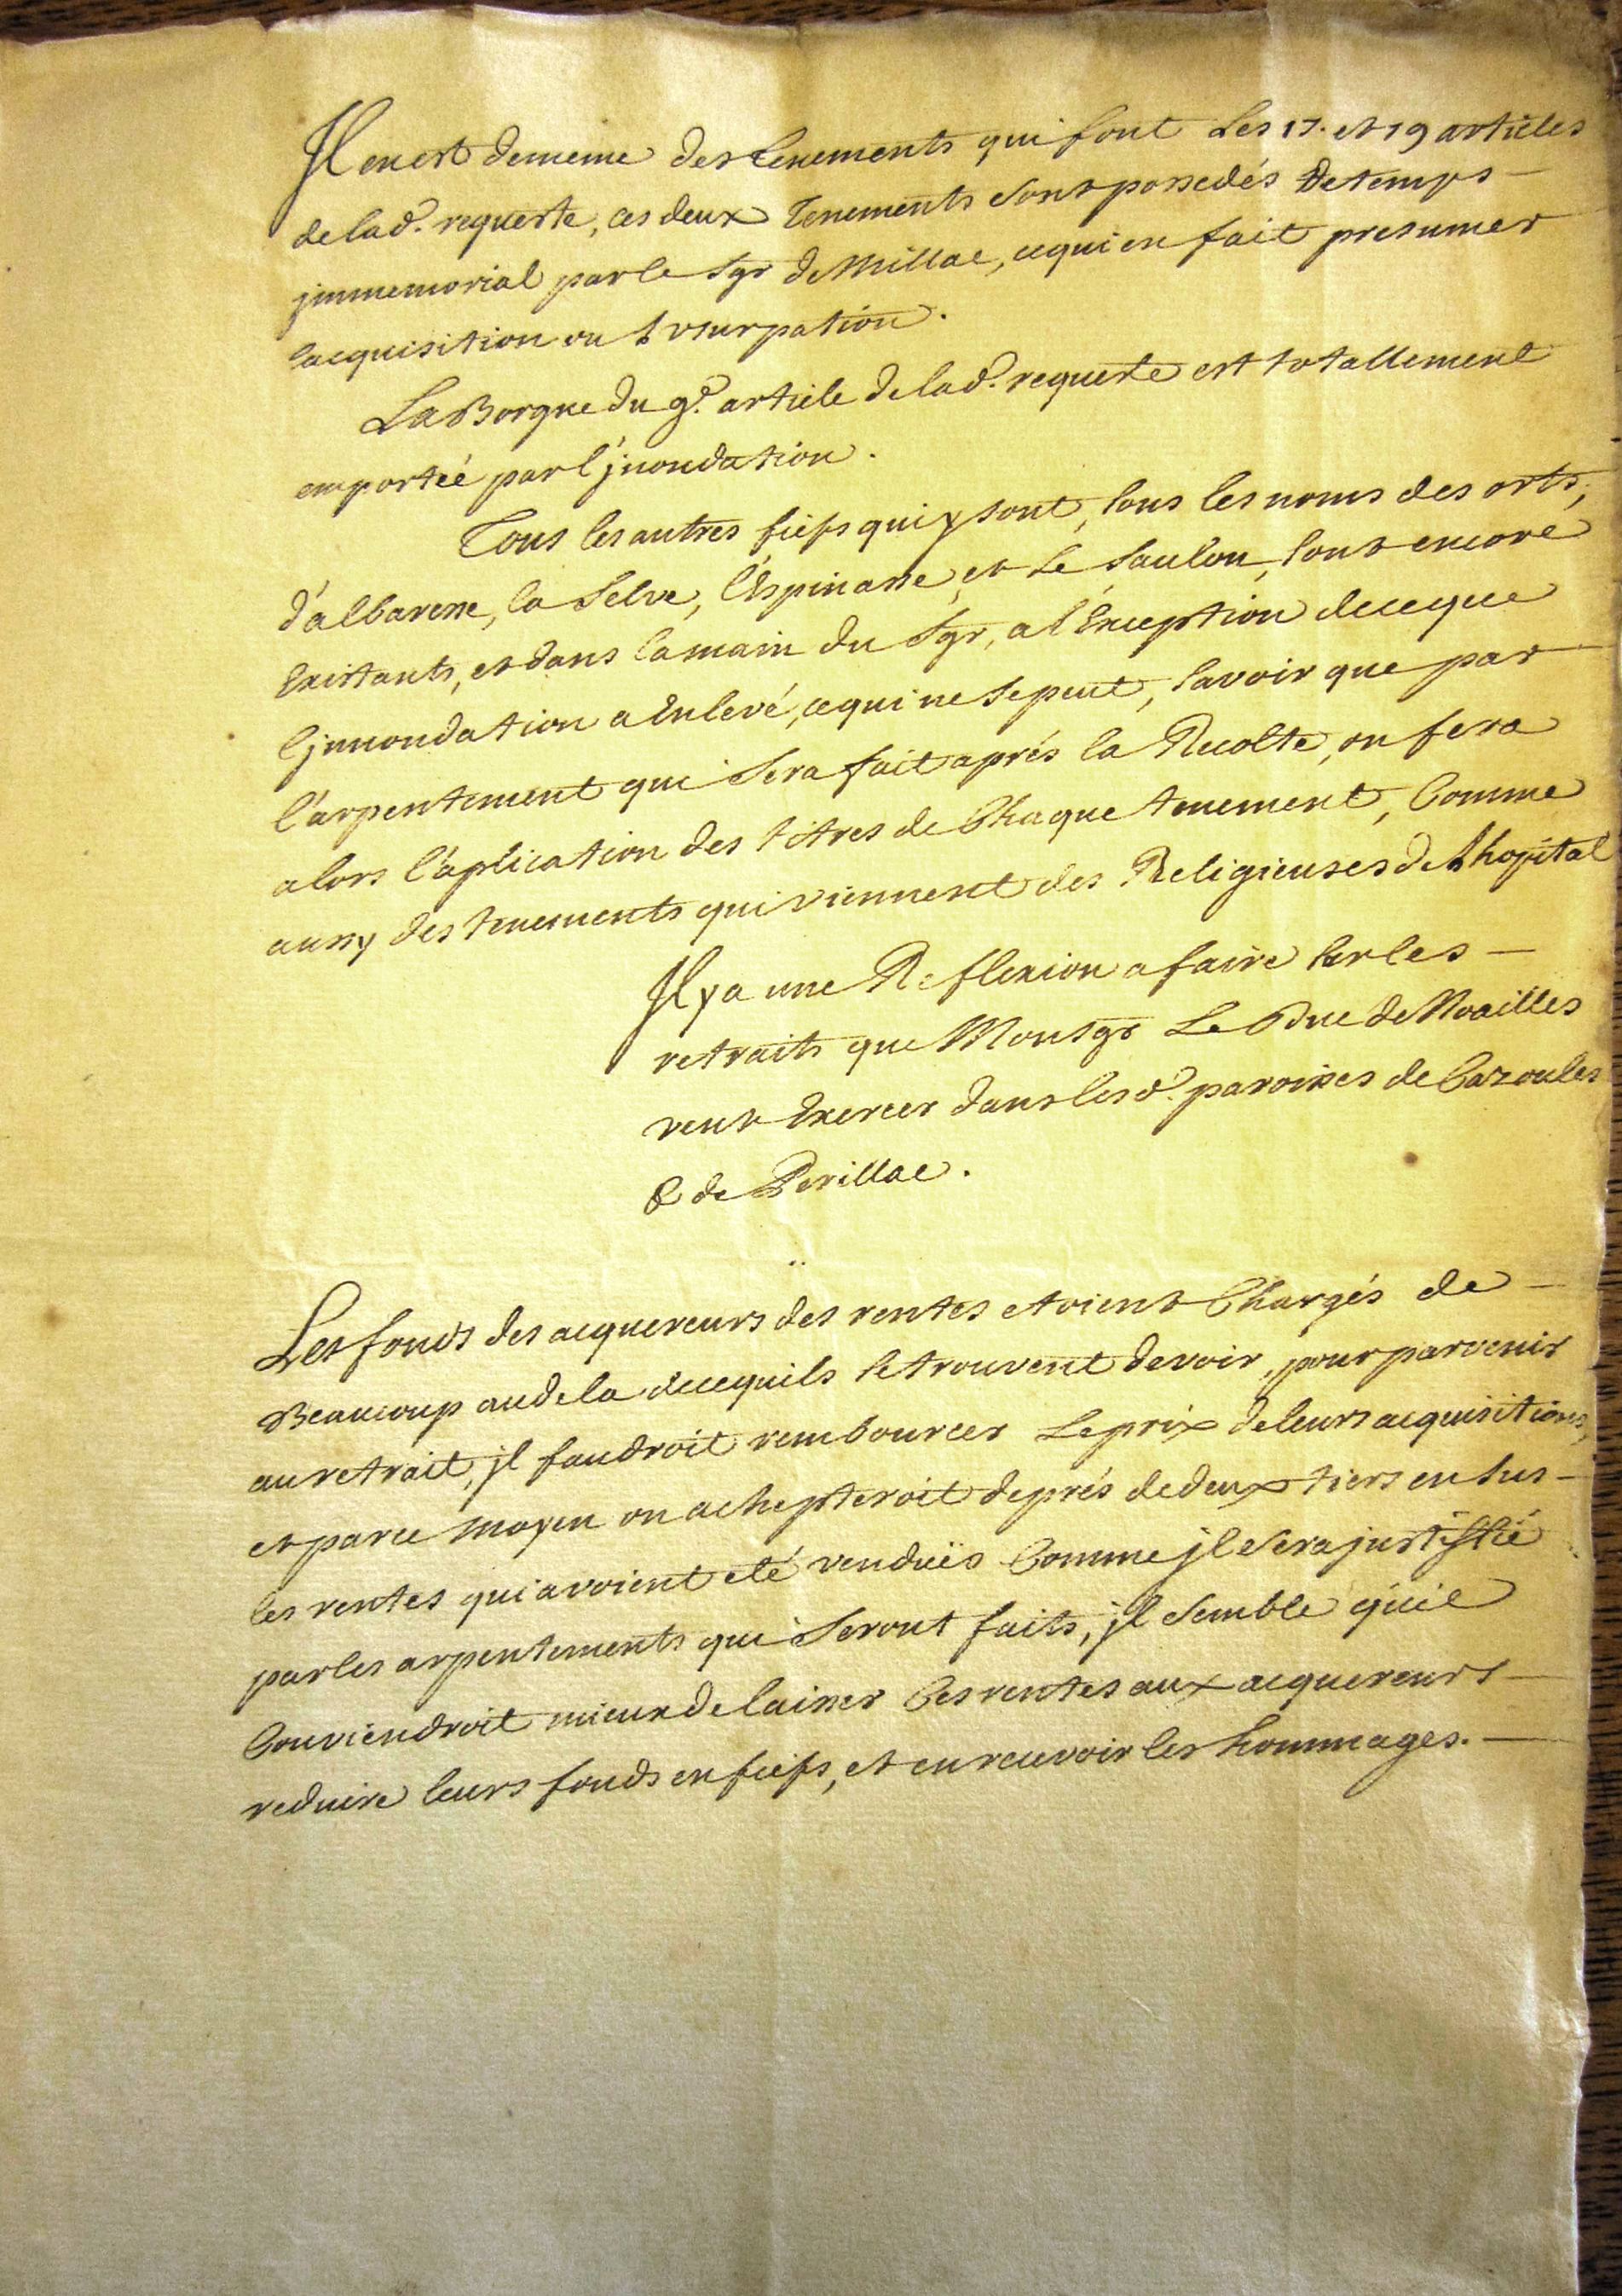 Il en est de meme des tenements qui font les 17. et 19 articles
de lad.e requeste, ces deux tenements sont possedés de temps
jmmemorial par le Sgr de Millac, ce qui en fait presumer
l'acquisition ou l'vsurpation.
La Borgne du 9.e article de lad.e requeste est totallement
emportéé par l'jnondation.
Tous les autres fiefs qui y sont, sous les noms des orts,
d'albaresse, la Selve, l'Espinasse, et le Saulou, sont encore
Existants, et dans la main du Sgr, a l'Exception de ce que
l'jnnondation a Enlevé, ce qui ne se peut, savoir que par
l'arpentement qui sera fait aprés la Recolte, on fera
alors l'aplication des titres de Chaque tenement, Comme
aussy des tenements qui viennent des Religieuses de l'hopital
Il y a une Reflexion a faire sur les
retraits que Monsgr Le Duc de Noailles
veut Exercer dans les d.es paroisses de Cazoules
& de Peyrillac.
Les fonds des acquereurs des rentes etoient Chargés de
Beaucoup audela de ce quils se trouvent devoir, pour parvenir
au retrait, jl faudroit rembourcer Le prix de leurs acquisitions,
et par ce moyen on achepteroit de prés de deux tiers en sus
les rentes qui avoient eté venduës Comme jl sera justiffié
par les arpentements qui seront faits, jl semble qu'il
Conviendroit mieux de laisser Ces rentes aux acquereurs
reduire leurs fonds en fiefs, et en recevoir les hommages.